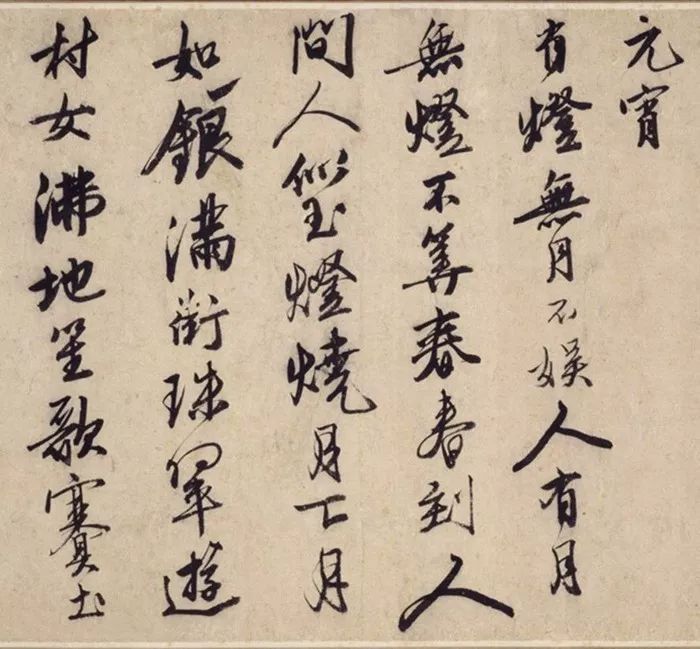 元宵
有燈無月不娛人有月
無燈不筭春春到人
間人似玉燈燒月下月
如銀滿街珠翠遊
村女沸地笙歌賽社